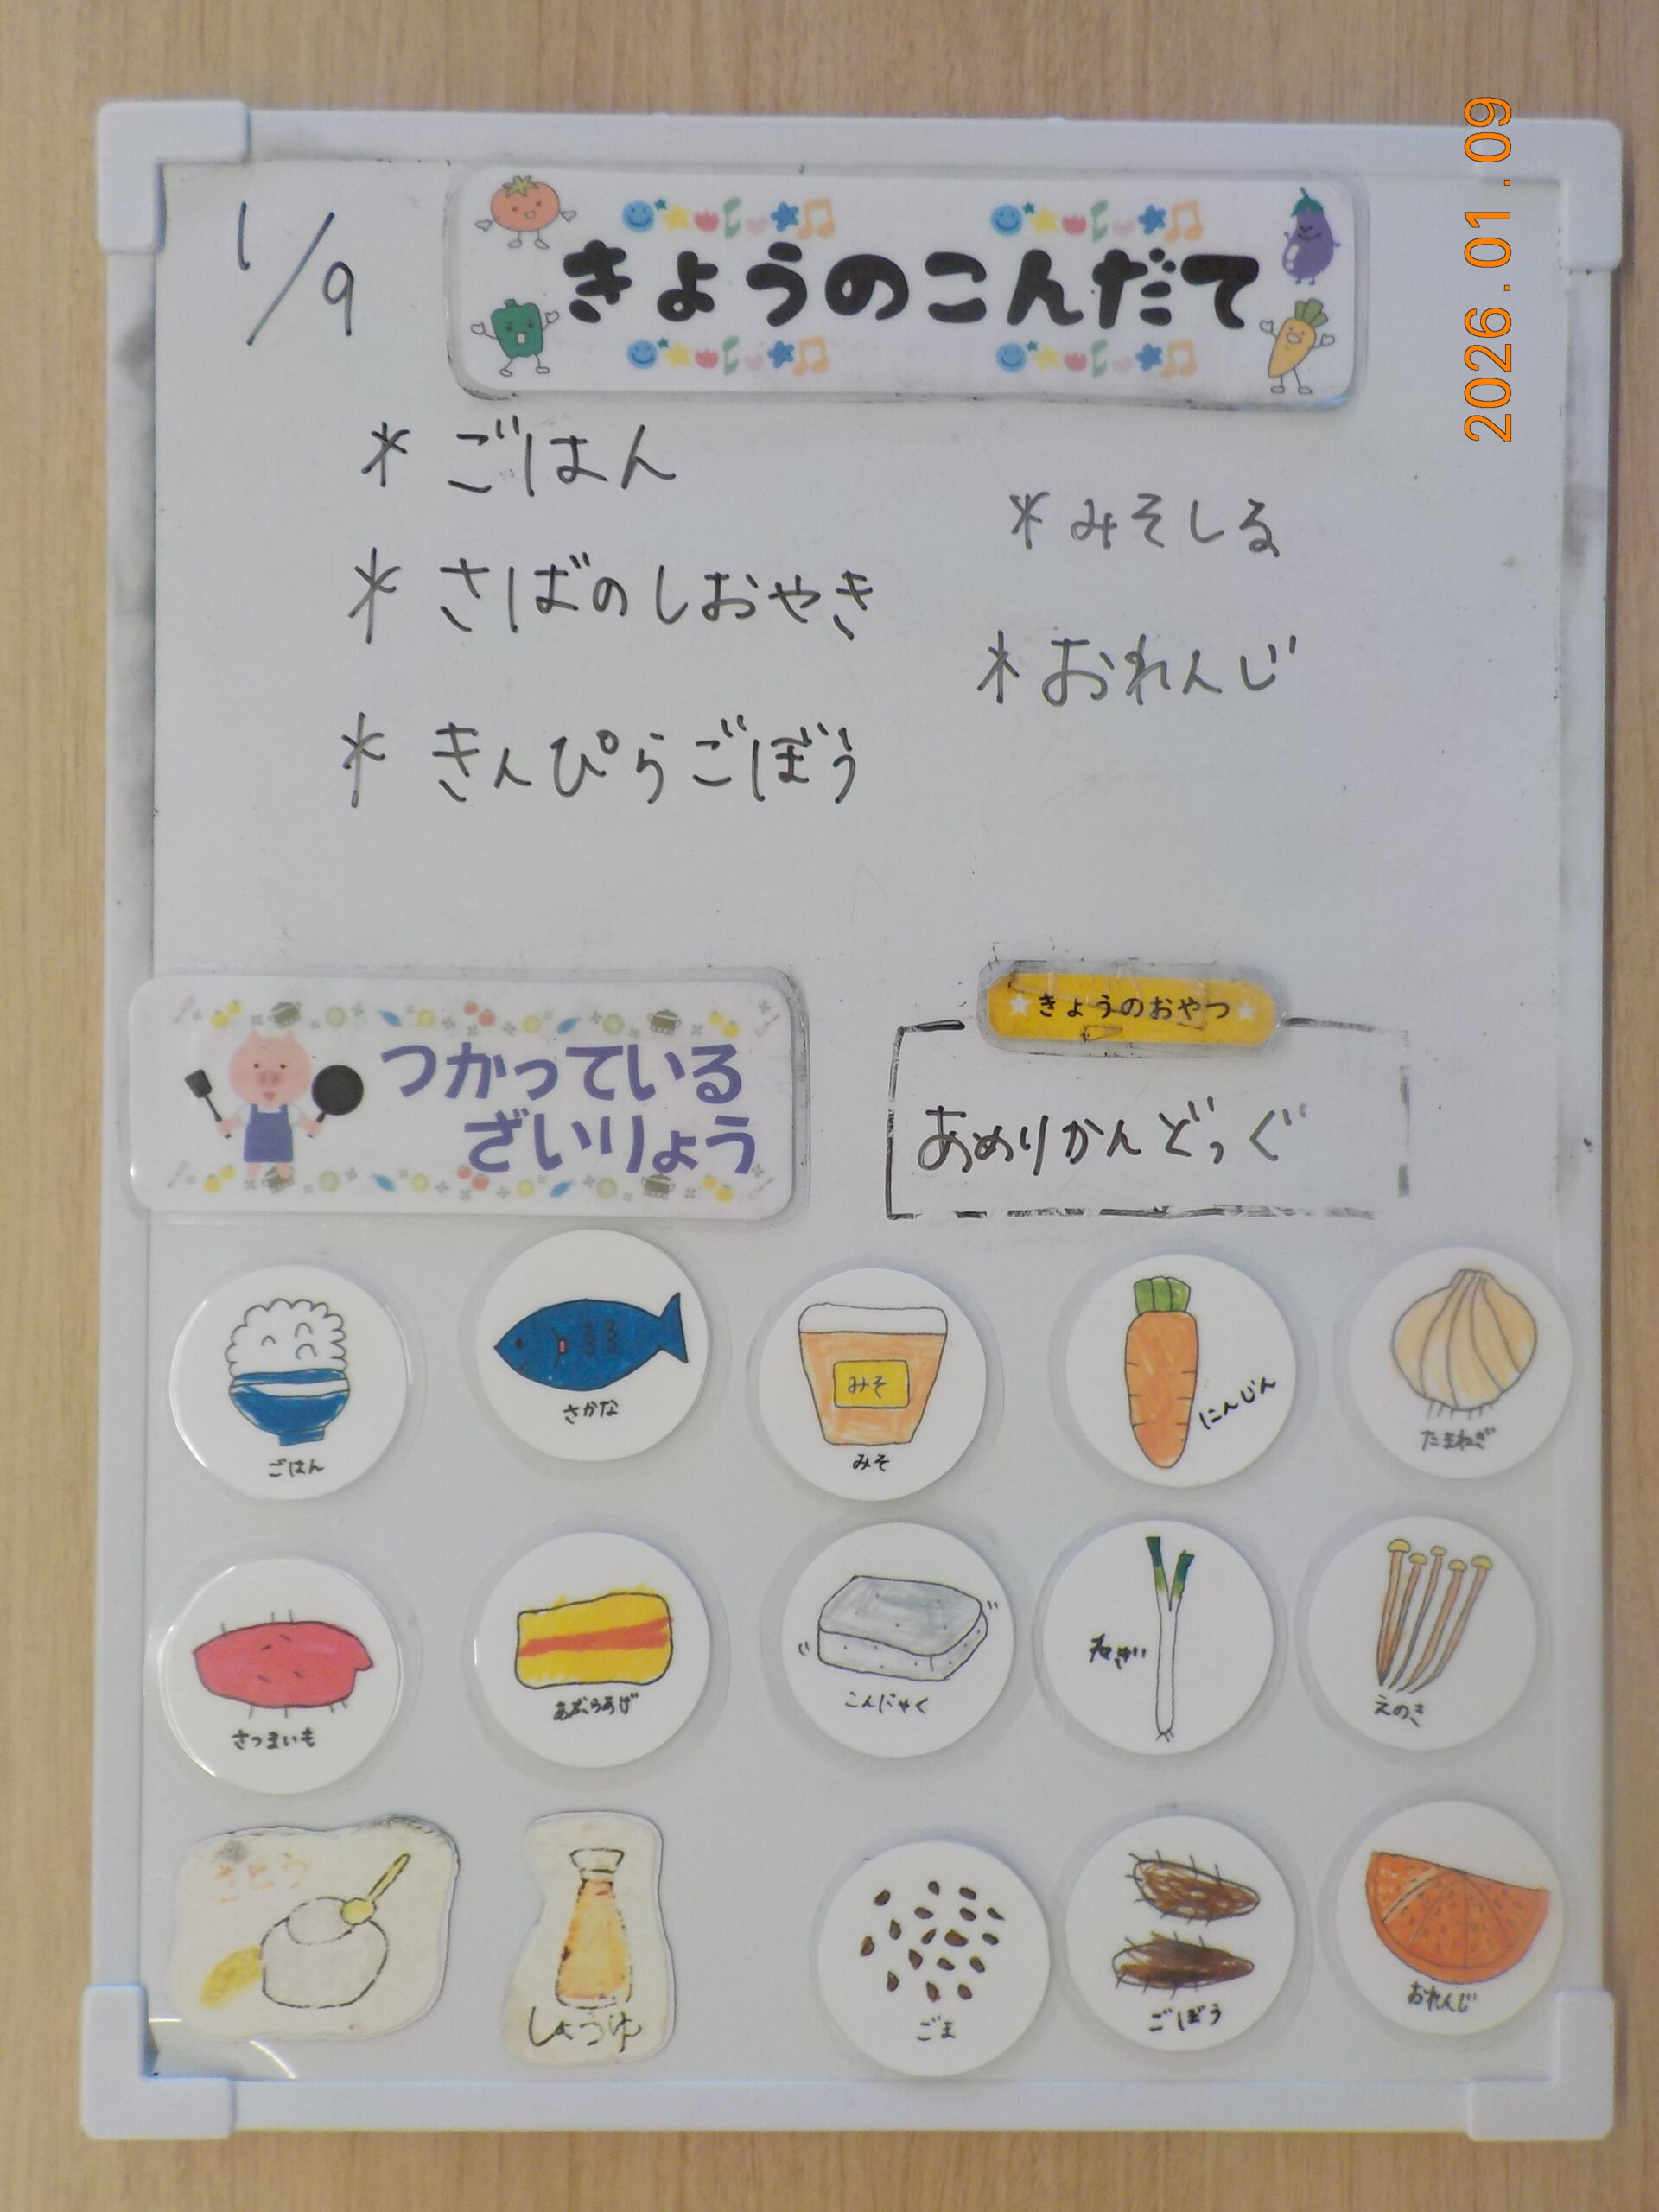 1/9
きょうのこんだて
2026.01.09
* ごはん
* さばのしおやき
* きんぴらごぼう
* みそしる
* おれんじ
つかっている
ざいりょう
きょうのおやつ
あめりかんどっぐ
ごはん
さかな
みそ
みそ
にんじん
たまねぎ
さつまいも
あぶらあげ
こんにゃく
ねぎ
えのき
さとう
しょうゆ
ごま
ごぼう
おれんじ